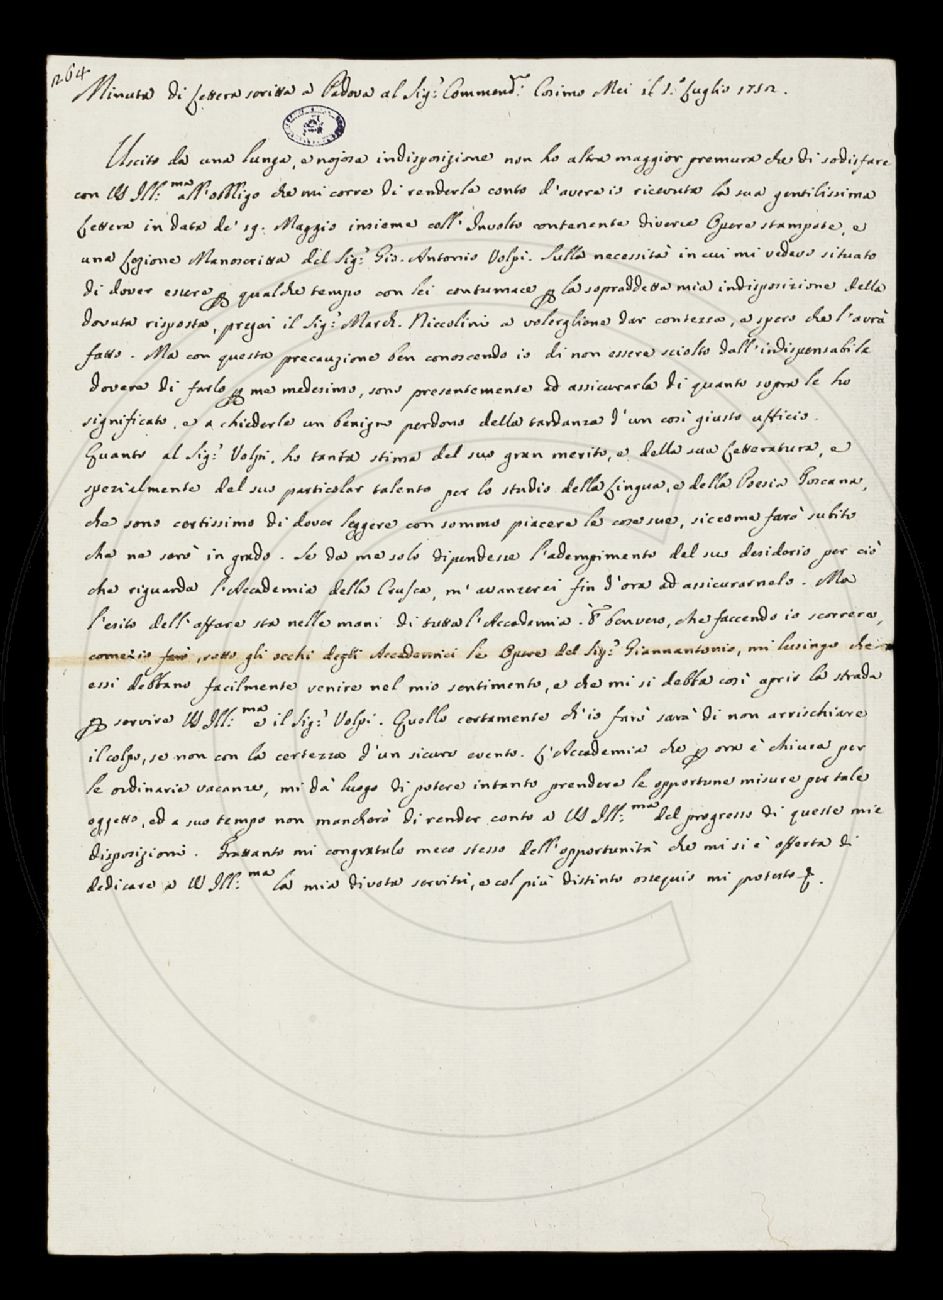 264
Minuta di Lettera scritta a Padova al Sig.r Commend.r Cosimo Mei il 1.o Luglio 1752.
Uscito da una lunga, e nojosa indisposizione non ho altra maggior premura che di sodisfare
con VS Ill:ma all'obbligo che mi corre di renderle conto d'avere io ricevuta la sua gentilissima
Lettera in data de' 19. Maggio insieme coll'Involto contenente diverse Opere stampate, e
una Lezione Manoscritta del Sig.r Gio. Antonio Volpi. Sulla necessità in cui mi vedevo situato
di dover essere ꝑ qualche tempo con lei contumace ꝑ la sopraddetta mia indisposizione della
dovuta risposta, pregai il Sig.r March. Niccolini a volergliene dar contezza, e spero che l'avrà
fatto. Ma con questa precauzione ben conoscendo io di non essere sciolto dall'indispensabile
dovere di farlo ꝑ me medesimo, sono presentemente ad assicurarla di quanto sopra le ho
significato, e a chiederle un benigno perdono della tardanza d'un così giusto ufficio.
Quanto al Sig.r Volpi, ho tanta stima del suo gran merito, e della sua Letteratura, e
spezialmente del suo particolar talento per lo studio della Lingua, e della Poesia Toscana,
che sono certissimo di dover leggere con sommo piacere le cose sue, siccome farò subito
che ne sarò in grado. Se da me solo dipendesse l'adempimento del suo desiderio per ciò
che riguarda l'Accademia della Crusca, m'avanzerei fin d'ora ad assicurarnelo. Ma
l'esito dell'affare sta nelle mani di tutta l'Accademia. È benvero, che facendo io scorrere,
come io farò, sotto gli occhi degli Accademici le Opere del Sig.r Giannantonio, mi lusingo che
essi debbano facilmente venire nel mio sentimento, e che mi si debba così aprir la strada
ꝑ servire VS Ill:ma e il Sig.r Volpi. Quello certamente ch'io farò sarà di non arrischiare
il colpo, se non con la certezza d'un sicuro evento. L'Accademia che ꝑ ora è chiusa per
le ordinarie vacanze, mi dà luogo di potere intanto prendere le opportune misure per tale
oggetto, ed a suo tempo non mancherò di render conto a VS Ill:ma del progresso di queste mie
disposizioni. Frattanto mi congratulo meco stesso dell'opportunità che mi si è offerta di
dedicare a VS Ill:ma la mia divota servitù, e col più distinto ossequio mi protesto